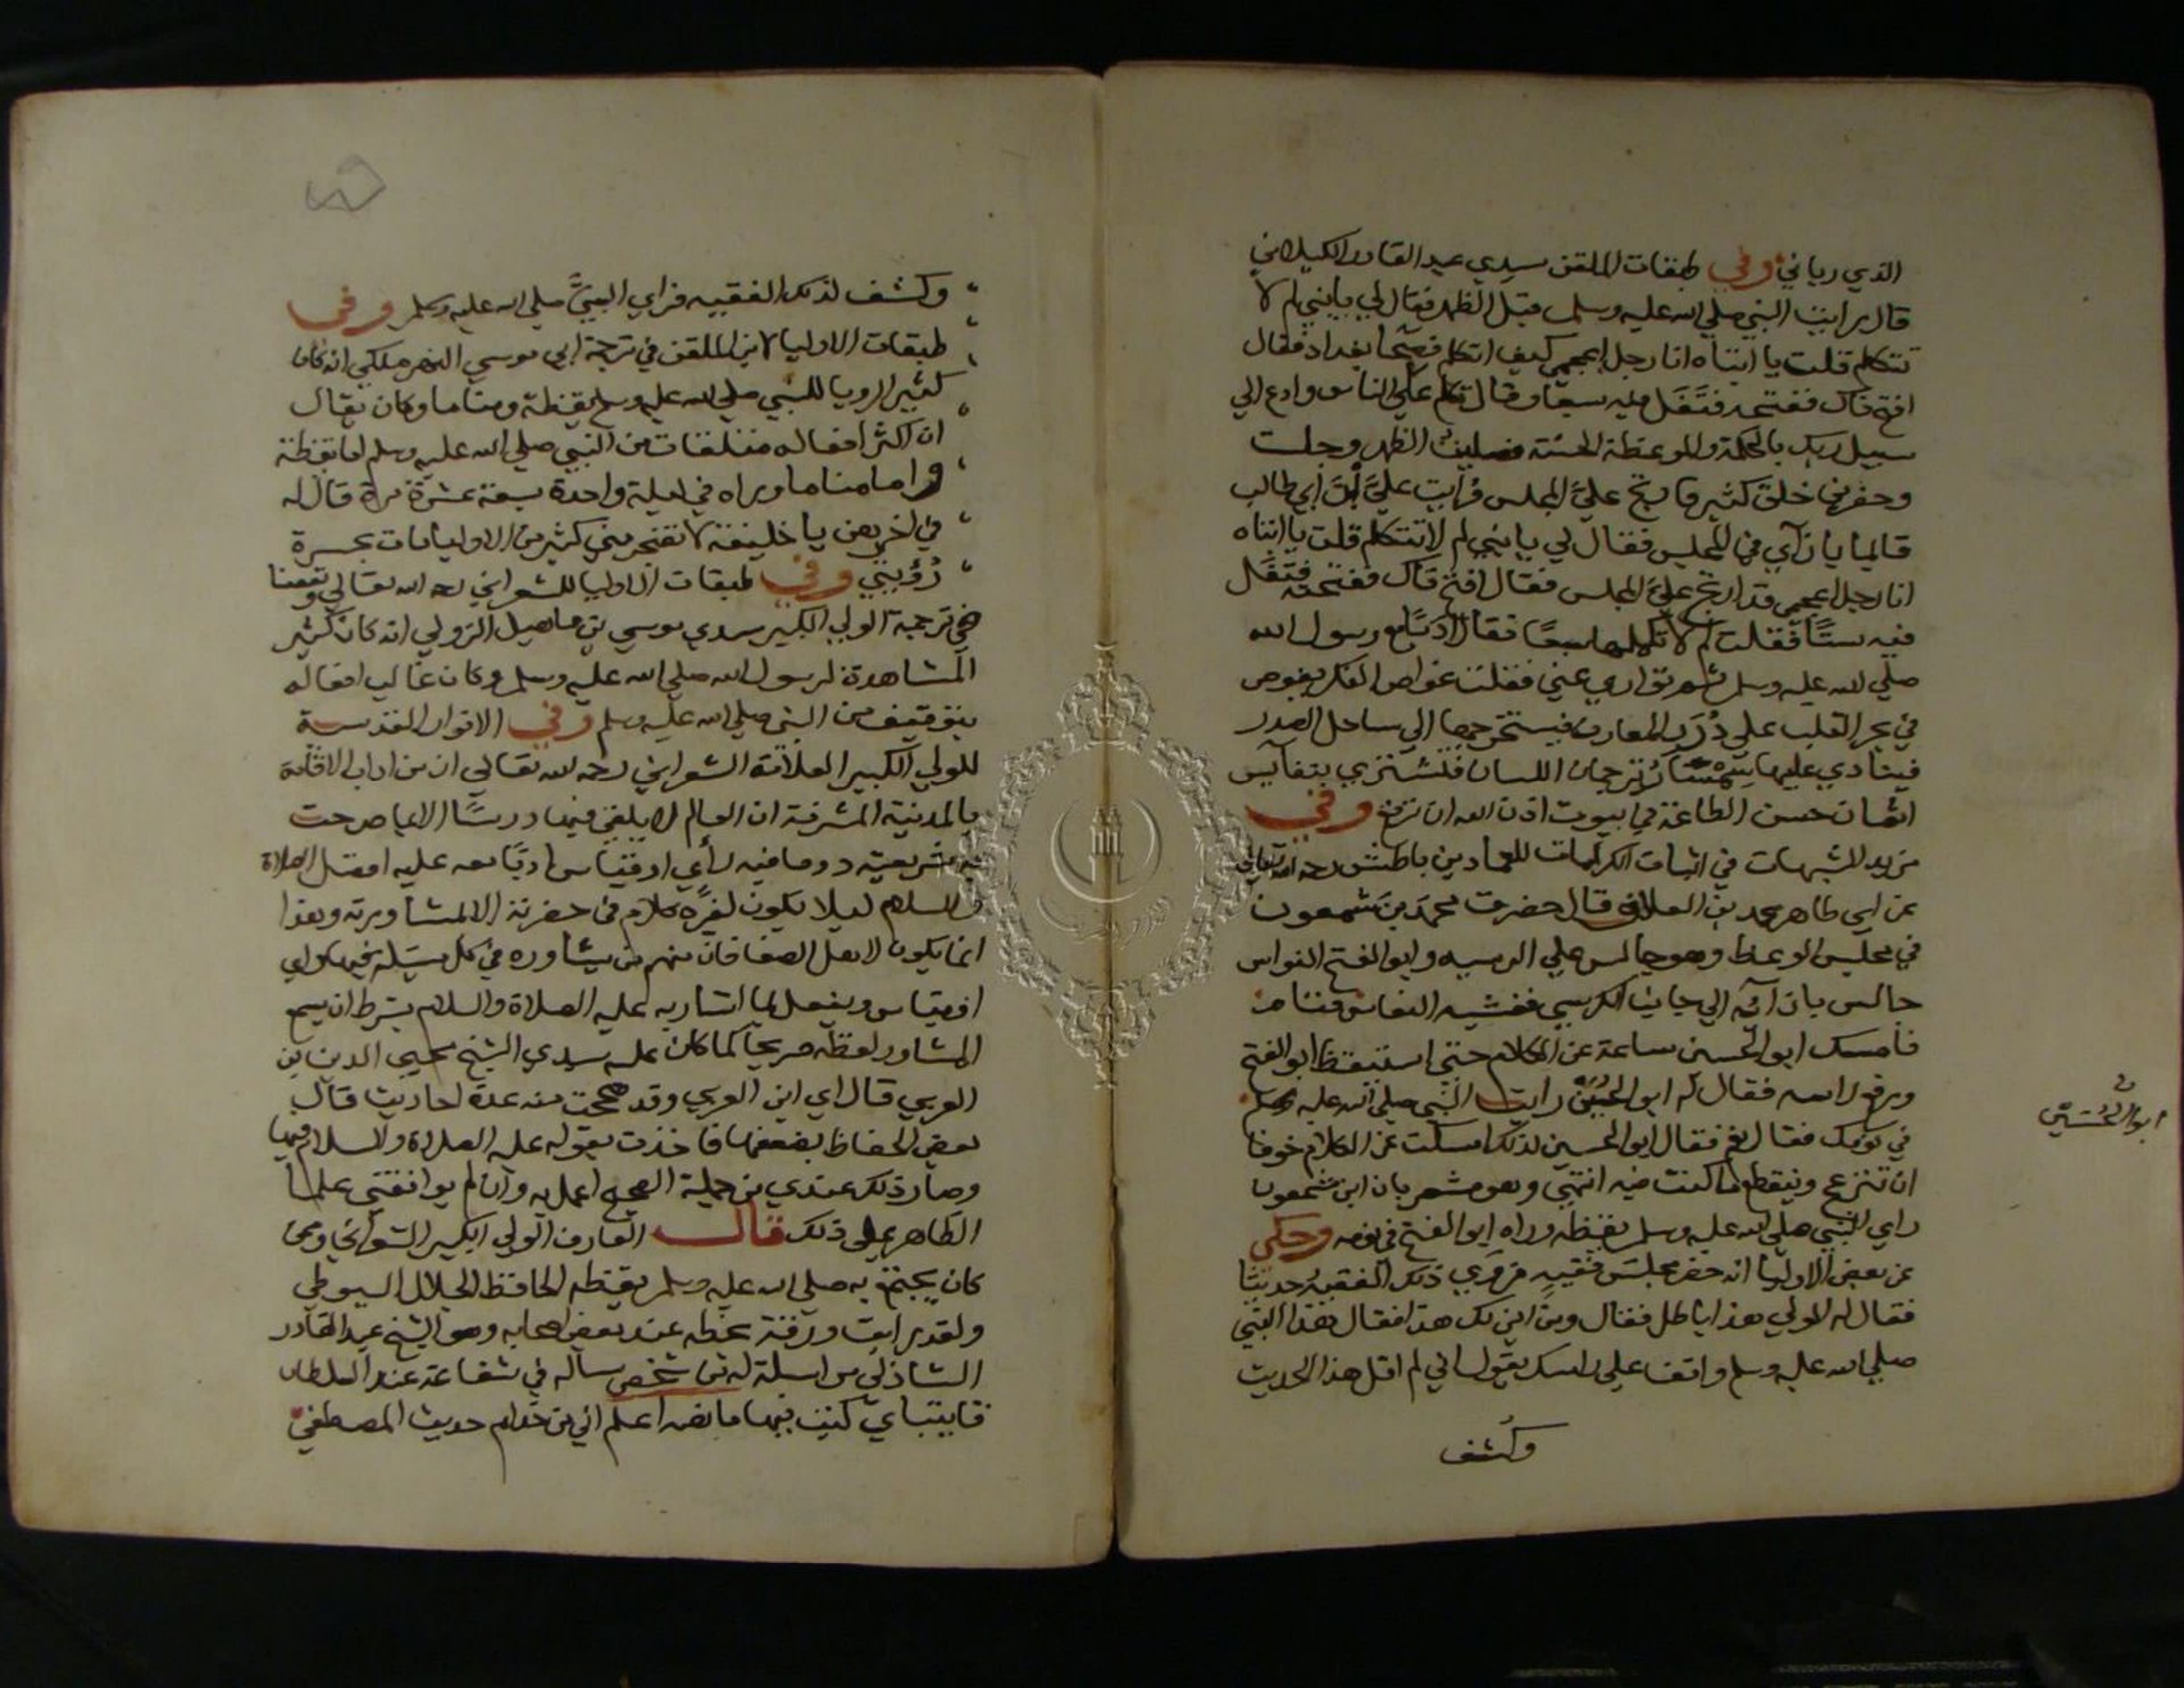 الذي رباني وفي طبقات الملقن سيدي عبد القادر الكيلاني
قال رايت النبي صلي الله عليه وسلم قبل الظهر فقال لي يابني لم لا
تتكلم قلت يا ابتاه انا رجل اعجمي كيف اتكلم فصحا بغداد فقال
افتح فاك ففتحته فتفل فيه سبعا وقال تكلم علي الناس وادع الي
سبيل ربك بالحكمة والموعظة الحسنة فصليت الظهر وجلست
وحضرني خلق كثير فارتج علي المجلس فرايت علي بن ابي طالب
قايما بازآي في المجلس فقال لي يابني لم لا تتكلم قلت يا ابتاه
انا رجل اعجمي قد ارتج علي المجلس فقال افتح فاك ففتحته فتفل
فيه ستا فقلت لم لا تكملها سبعا فقال ادبا مع رسول الله
صلي الله عليه وسلم ثم تواري عني فقلت غواص الفكر يغوص
في بحر القلب علي درر المعارف فيستخرجها الي ساحل الصدر
فينادي عليها سمسار ترجمان اللسان فتشتري بنفايس
اثمان حسن الطاعة في بيوت اذن الله ان ترفع وفي
مزيد الشبهات في اثبات الكرامات للعماد بن باطيش رحمه الله تعالي
عن ابي طاهر محمد بن العلاف قال حضرت محمد بن شمعون
في مجلس الوعظ وهو جالس علي كرسيه وابو الفتح القواس
جالس بازآئه الي جانب الكرسي فغشيه النعاس فنام
فامسك ابو الحسين ساعة عن الكلام حتي استيقظ ابو الفتح
ورفع راسه فقال له ابو الحسين رايت النبي صلي الله عليه وسلم
في نومك فقال نعم فقال ابو الحسين لذلك امسكت عن الكلام خوفا
ان تنزعج وينقطع ما كنت فيه انتهي وهو مشعر بان ابن شمعون
راي النبي صلي الله عليه وسلم يقظه وراه ابو الفتح في نومه وحكي
عن بعض الاوليا انه حضر مجلس فقيه فروي ذلك الفقيه حديثا
فقال له الولي هذا باطل فقال ومن اين لك هذا فقال هذا النبي
صلي الله عليه وسلم واقف علي راسك يقول اني لم اقل هذا الحديث
وكشف
ابو الحسين
وكشف لذلك الفقيه فراي النبي صلي الله عليه وسلم وفي
طبقات الاوليا لابن الملقن في ترجمة ابي موسي النهرملكي انه كان
كثير الرويا للنبي صلي الله عليه وسلم يقظة ومناما وكان يقال
ان اكثر افعاله متلقات من النبي صلي الله عليه وسلم اما يقظة
واما مناما وراه في ليلة واحدة سبعة عشرة مرة قال له
في اخريهن يا خليفة لا تضجر مني كثير من الاوليا مات بحسرة
رؤيتي وفي طبقات الاوليا للشعراني رحمه الله تعالي ونفعنا
في ترجمة الولي الكبير سيدي موسي بن ماهيل الزولي انه كان كثير
المشاهدة لرسول الله صلي الله عليه وسلم وكان غالب افعاله
بتوقيف من النبي صلي الله عليه وسلم وفي الانوار القدسية
للولي الكبير العلامة الشعراني رحمه الله تعالي ان من اداب الاقامة
بالمدينة المشرفة ان العالم لا يلقي فيها درسا الا بما صرحت
به شريعته دون ما فيه راي او قياس ادبا معه عليه افضل الصلاة
والسلام ليلا يكون لغيره كلام في حضرته الا بمشاورته وهذا
انما يكون لاهل الصفا فان منهم من يشاوره في كل مسيلة فيها راي
او قياس ويفعل بما اشار به عليه الصلاة والسلام بشرط ان يسمع
المشاور لفظه صريحا كما كان عليه سيدي الشيخ محيي الدين بن
العربي قال اي ابن العربي وقد صححت منه عدة احاديث قال
بعض الحفاظ بضعفها فاخذت بقوله عليه الصلاة والسلام فيها
وصار ذلك عندي من جملة الصحيح اعمل به وان لم يوافقني علما
الظاهر علي ذلك قال العارف الولي الكبير الشعراني وممن
كان يجتمع به صلي الله عليه وسلم يقظه الحافظ الجلال السيوطي
ولقد رايت ورقة بخطه عند بعض اصحابه وهو الشيخ عبد القادر
الشاذلي مراسلة له من شخص ساله في شفاعة عند السلطان
قايتباي كتب فيها ما نصه اعلم اني من خدام حديث المصطفي